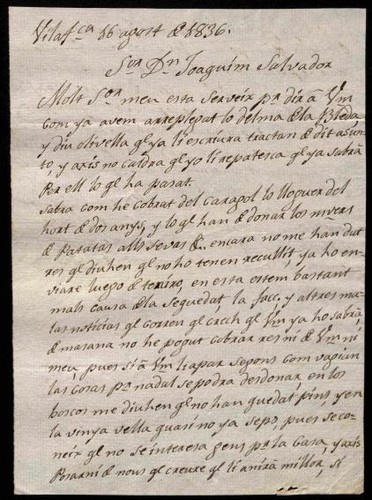 Vilafca 16 agost de 1836.
Sor. Dn. Joaquim Salvador
Molt Sor. meu esta serveix pr. dir á Vm
com ya avem arreplegat lo delma de la Bleda,
y diu Olivella qe ya li escriura tractan de dit asun-
to, y axis no caldra qe yo li repatesca qe ya sabrá
per ell lo qe ha pasat.
Sabra com he cobrat del Caragol lo lloguer del
hort de dos anys, y lo qe han de donar los
de patatas alls sevas &. encara no me han dut
res qe diuhen qe no ho tenen recullit ya ho en-
viare luego de teniro, en esta estem bastant
mals causa de la seguedat, la facc. y altres ma-
las noticias qe corren qe crech qe Vm ya ho sabrá,
de masana no he pogut cobrar res ni de Vm ni
meu, pues si á Vm li apar segons com vagin
las cosas pr. nadal se podra desdonar, en los
boscos me diuhen qe no han quedat pins y en
la vinya vella quasi no ya seps, pues se co-
neix qe no se interesa gens pr. la casa, y axis
posarni de nous qe creure qe li anirá millor, si